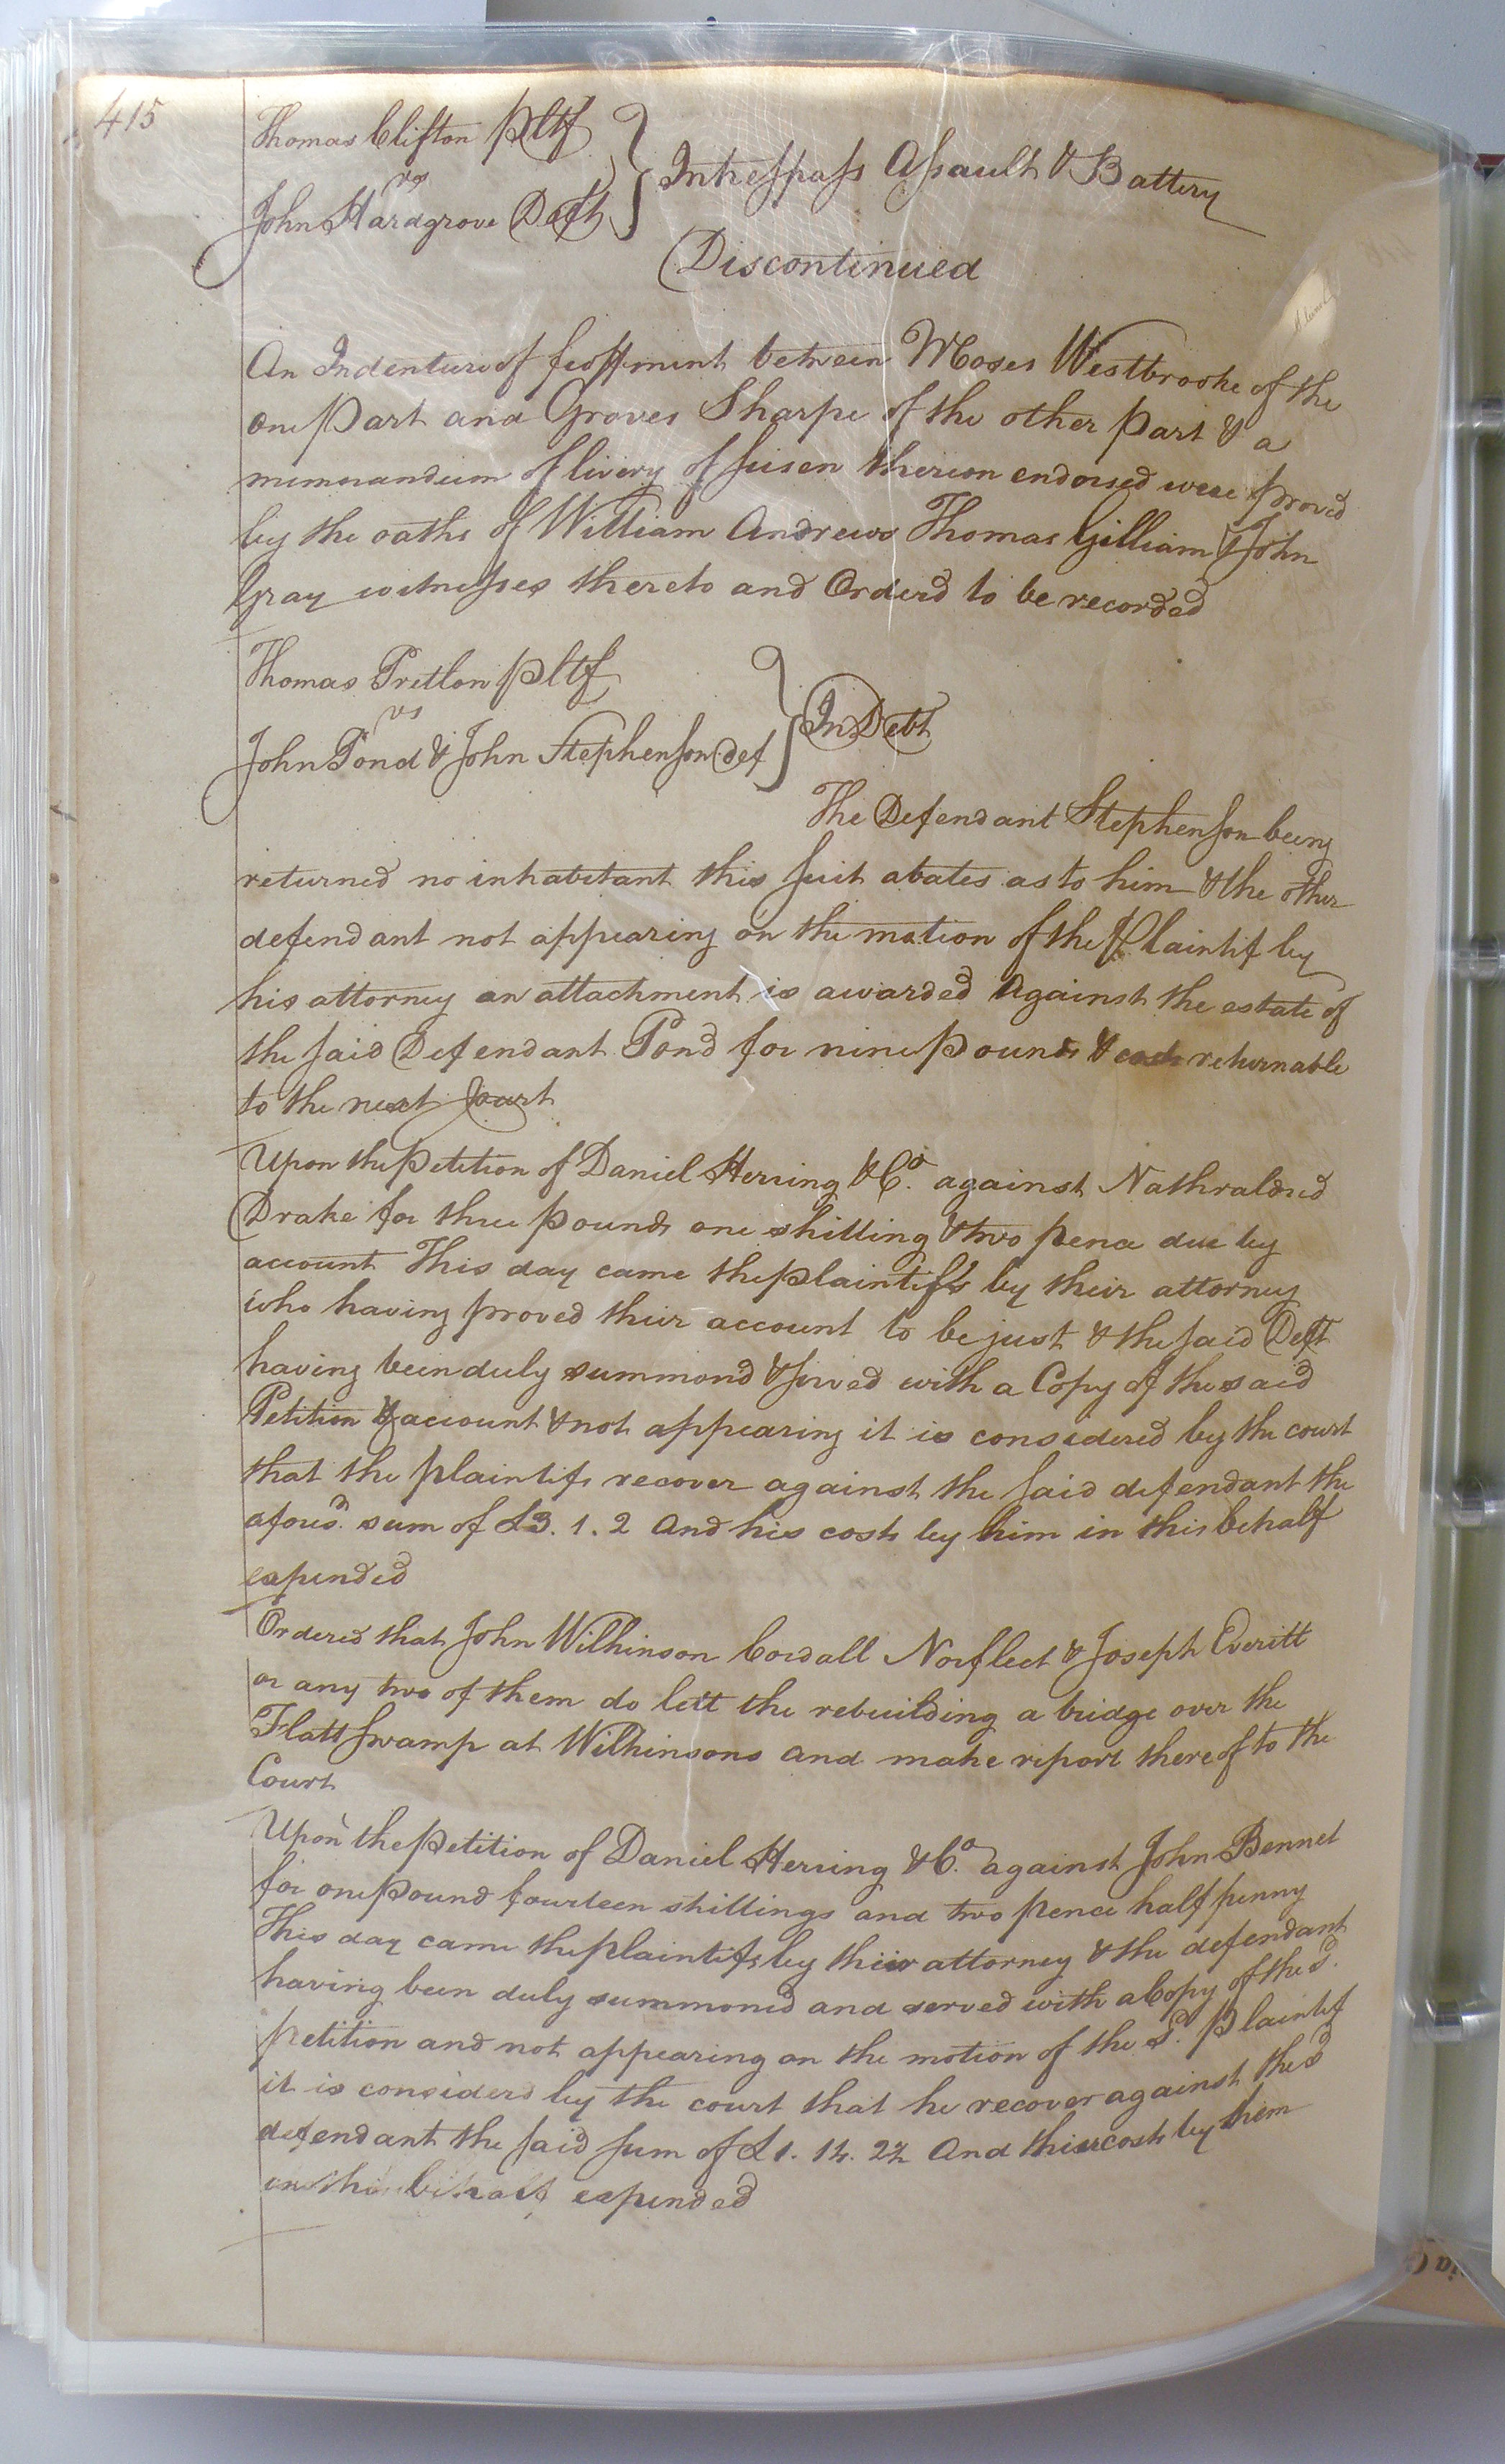 415
Thomas Clifton pltf
vs
John Hardgrove Deft
} Intresspass Assault & Battery
Discontinued
An Indenture of feoffment between Moses Westbrooke of the
one Part and Groves Sharpe of the other part & a
memorandum of livery of seisen thereon endorsed were proved
by the oaths of William Andrews Thomas Gilliam & John
Gray witnesses thereto and Orderd to be recorded
Thomas Pretlon pltf
vs
John Pond & John Stephenson def
} In Debt
The Defendant Stephenson being
returned no inhabitant this suit abates as to him & the other
defendant not appearing on the motion of the Plaintif by
his attorney an attachment is awarded Against the estate of
the said Defendant Pond for nine Pounds & costs returnable
to the next Court
Upon the Petition of Daniel Herring & Co. against
Drake for three pounds one shilling & two pence due by
account This day came the plaintiffs by their attorney
who having proved their account to be just & the said Deft
having been duly summond & served with a Copy of the said
Petition & account & not appearing it is considered by the court
that the plaintifs recover against the said defendant the
aforesd. sum of £3. 1. 2 And his costs by him in this behalf
expended
Ordered that John Wilkinson Cordall Norfleet & Joseph Everitt
or any two of them do lett the rebuilding a bridge over the
Flatt swamp at Wilkinsons and make report thereof to the
Court
Upon the Petition of Daniel Herring & Co. against John Bennet
for one Pound fourteen shillings and two pence half penny
This day came the plaintifs by their attorney & the defendant
having been duly summoned and served with a Copy of the sd.
petition and not appearing on the motion of the sd. plaintif
it is considerd by the court that he recover against the sd
defendant the said sum of £1. 14. 2½ And their costs by them
in this behalf expended